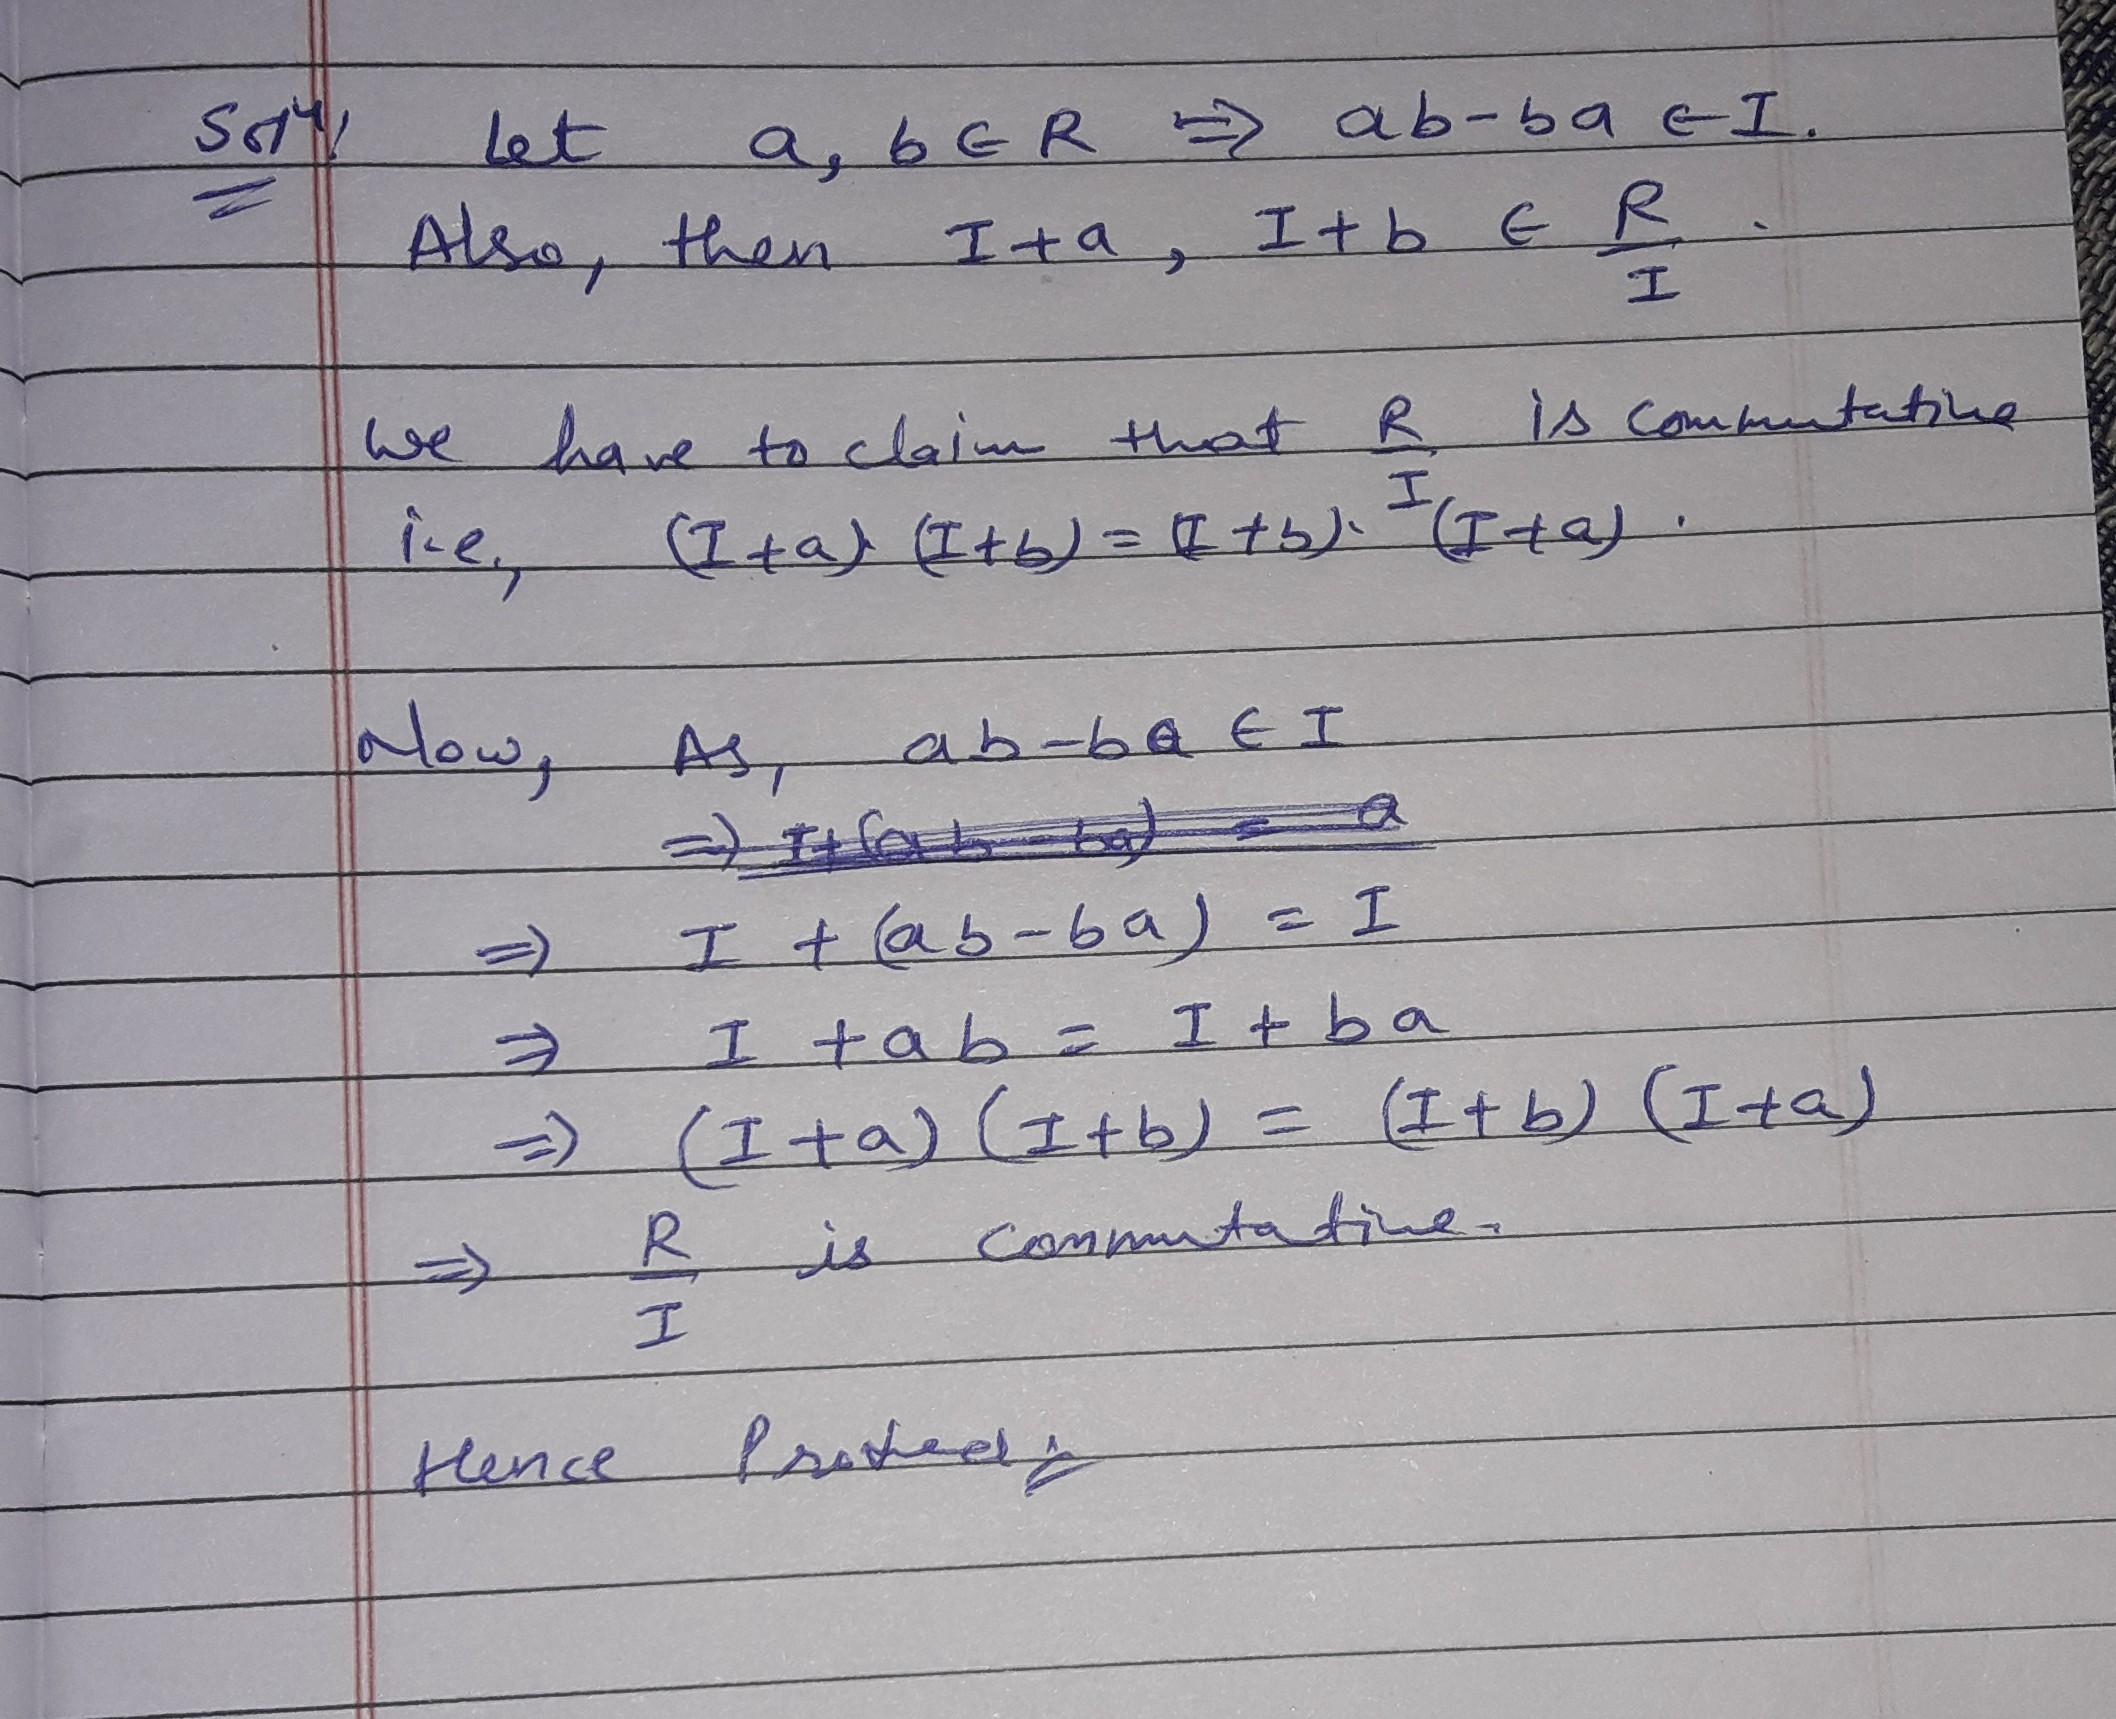 Sol^n! Let a, b ∈ R ⇒ ab-ba ∈ I.
Also, then I+a, I+b ∈ R/I.
We have to claim that R/I is commutative
i.e., (I+a)·(I+b) = (I+b)·(I+a).
Now, As, ab-ba ∈ I
⇒ I+(ab-ba) = a
⇒ I + (ab-ba) = I
⇒ I + ab = I + ba
⇒ (I+a) (I+b) = (I+b) (I+a)
⇒ R/I is commutative.
Hence Proved.